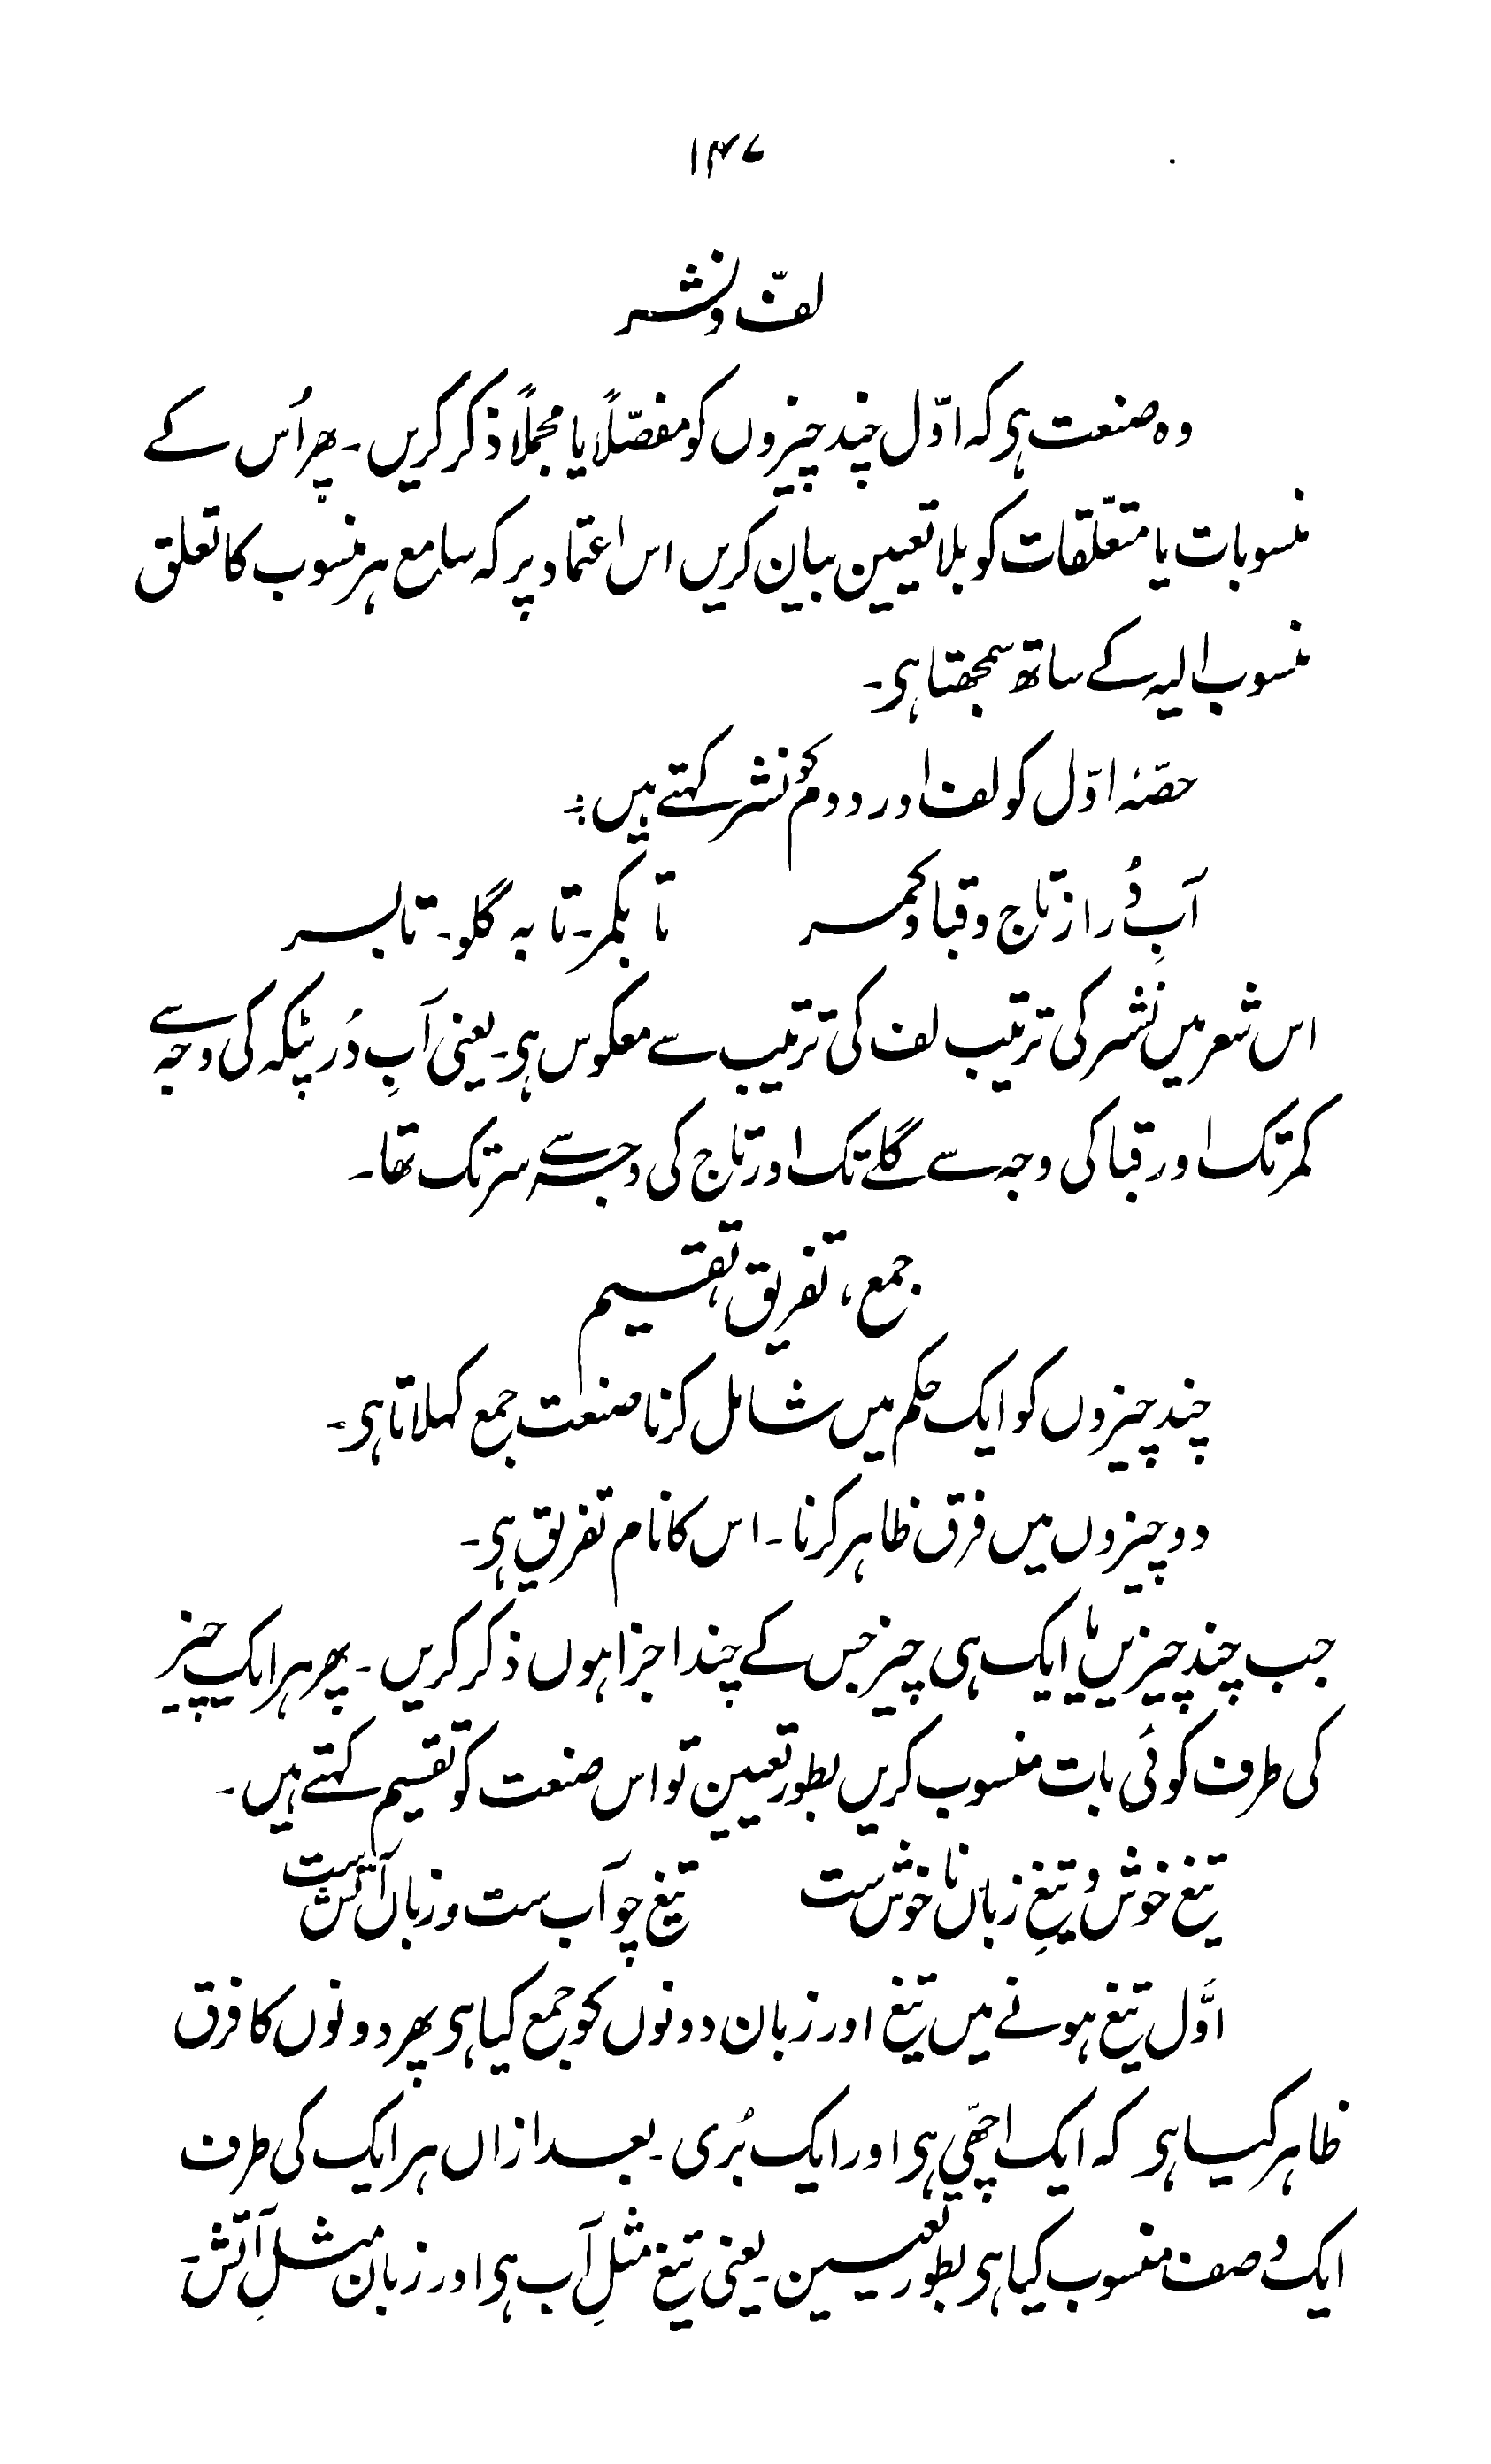 ۱۴۷
لفّ و نشر
وہ صنعت ہی کہ اوّل چند چیزوں کو مفصّلاً یا مجملاً ذکر کریں۔ پھر اُس کے
منسوبات یا متعلّقات کو بلا تعیین بیان کریں اس اعتماد پر کہ سامع ہر منسوب کا تعلق
منسوب الیہ کے ساتھ سمجھتا ہی۔
حصّۂ اوّل کو لف اور دوم کو نشر کہتے ہیں:
آبِ دُر از تاج و قبا و کمر تا بکمر۔ تا بہ گلو۔ تا بسر
اس شعر میں نشر کی ترتیب لف کی ترتیب سے معکوس ہی۔ یعنی آبِ دُر پٹکہ کی وجہ سے
کمر تک اور قبا کی وجہ سے گلے تک اور تاج کی وجہ سے سر تک تھا۔
جمع، تفریق، تقسیم
چند چیزوں کو ایک حکم میں شامل کرنا صنعت جمع کہلاتا ہی۔
دو چیزوں میں فرق ظاہر کرنا۔ اس کا نام تفریق ہی۔
جب چند چیزیں یا ایک ہی چیز جس کے چند اجزا ہوں ذکر کریں۔ پھر ہر ایک چیز
کی طرف کوئی بات منسوب کریں بطور تعیین تو اس صنعت کو تقسیم کہتے ہیں۔
تیغ خوش و تیغِ زباں ناخوش ست تیغ چو آب ست و زباں آتش ست
اوّل تیغ ہونے میں تیغ اور زبان دونوں کو جمع کیا ہی پھر دونوں کا فرق
ظاہر کیا ہی کہ ایک اچھّی ہی اور ایک بُری۔ بعد ازاں ہر ایک کی طرف
ایک وصف منسوب کیا ہی بطور تعیین۔ یعنی تیغ مثلِ آب ہی اور زبان مثلِ آتش۔